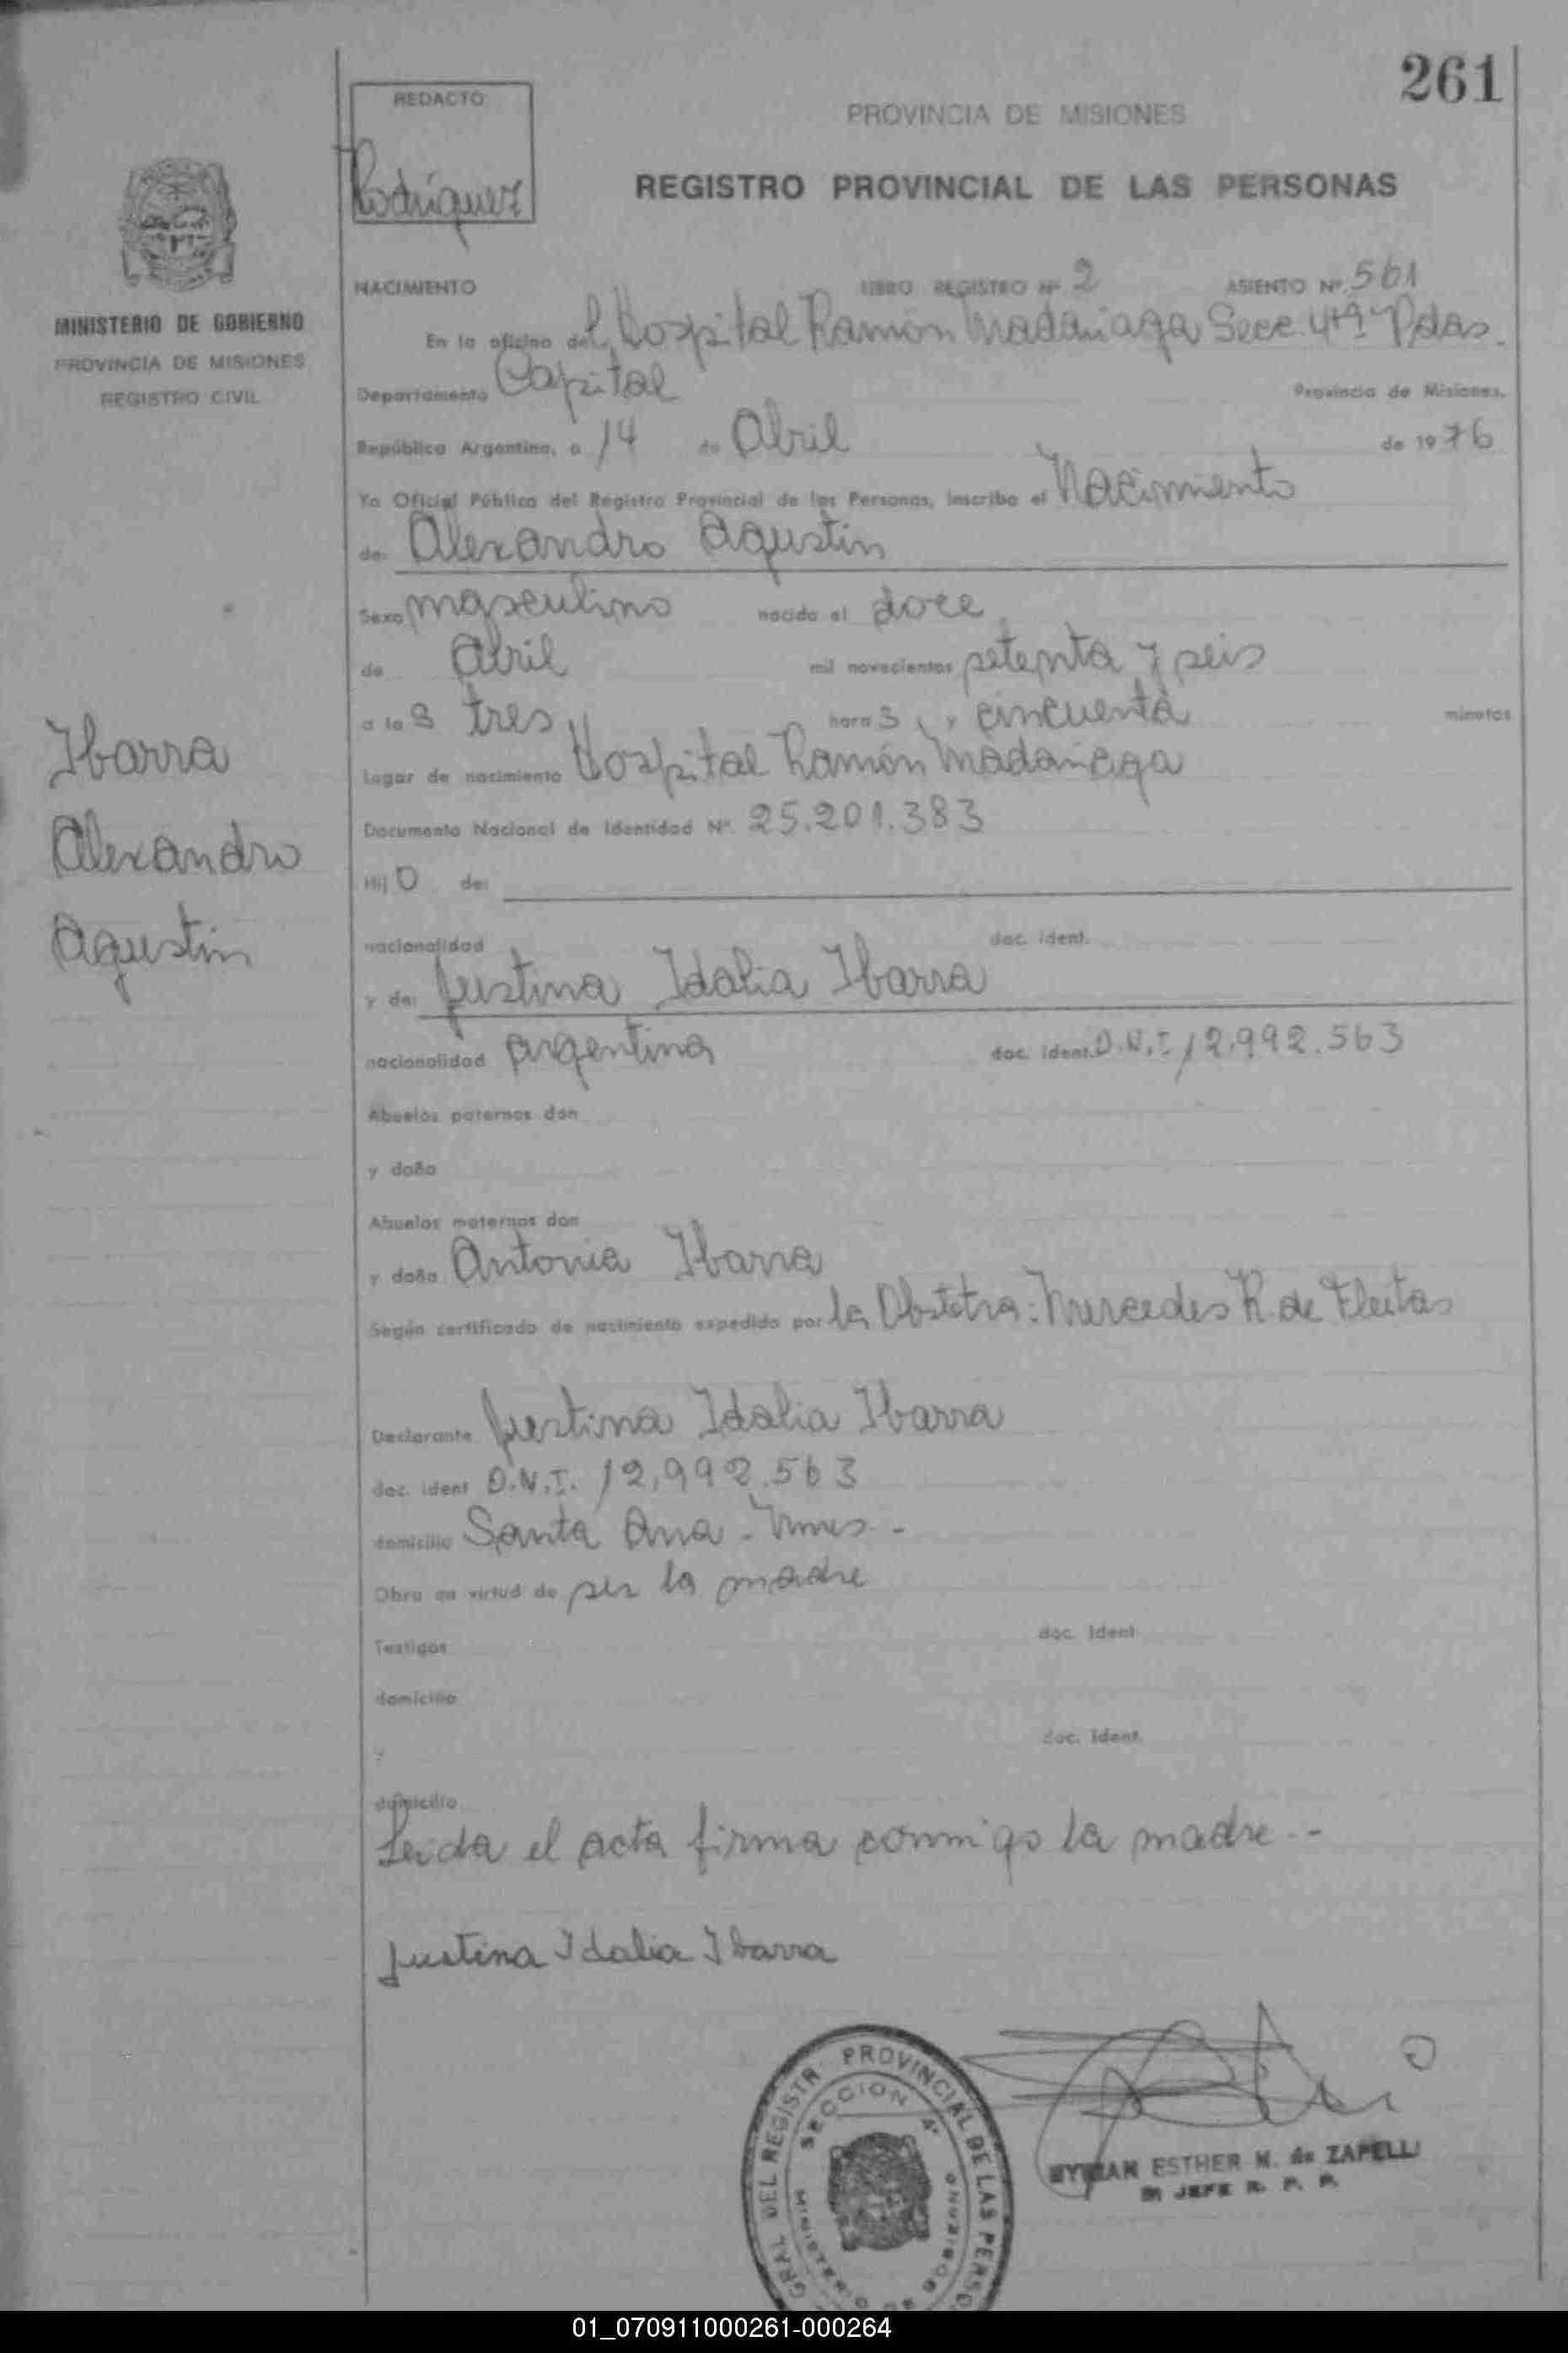 261
REDACTO:
Rodríguez
PROVINCIA DE MISIONES
REGISTRO PROVINCIAL DE LAS PERSONAS
MINISTERIO DE GOBIERNO
PROVINCIA DE MISIONES
REGISTRO CIVIL
NACIMIENTO LIBRO REGISTRO Nº 2 ASIENTO Nº 561
En la oficina del Hospital Ramón Madariaga Secc. 4ta Pdas.
Departamento Capital Provincia de Misiones,
República Argentina, a 14 de Abril de 1976
Yo Oficial Público del Registro Provincial de las Personas, inscribo el Nacimiento
de: Alexandro Agustin
Sexo masculino nacido el doce
de Abril mil novecientos setenta y seis
a las tres horas y cincuenta minutos
Lugar de nacimiento Hospital Ramón Madariaga
Documento Nacional de Identidad Nº 25.201.383
Hijo de:
Ibarra
Alexandro
Agustin
nacionalidad doc. ident.
y de: Justina Idalia Ibarra
nacionalidad argentina doc. ident. D.N.I. 12.992.563
Abuelos paternos don
y doña
Abuelos maternos don
y doña Antonia Ibarra
Según certificado de nacimiento expedido por la Obstetra: Mercedes R. de Fleitas
Declarante Justina Idalia Ibarra
doc. ident D.N.I. 12.992.563
domicilio Santa Ana -
Obra en virtud de ser la madre
Testigos doc. ident
domicilio
y doc. ident.
domicilio
Leida el acta firma conmigo la madre.-
Justina Idalia Ibarra
GRAL DEL REGISTR PROVINCIAL DE LAS PERSO
SECCION 4ª
MINISTERIO GOBIERNO
MYRIAN ESTHER N. de ZAPELLI
JEFE R. P. P.
01_070911000261-000264